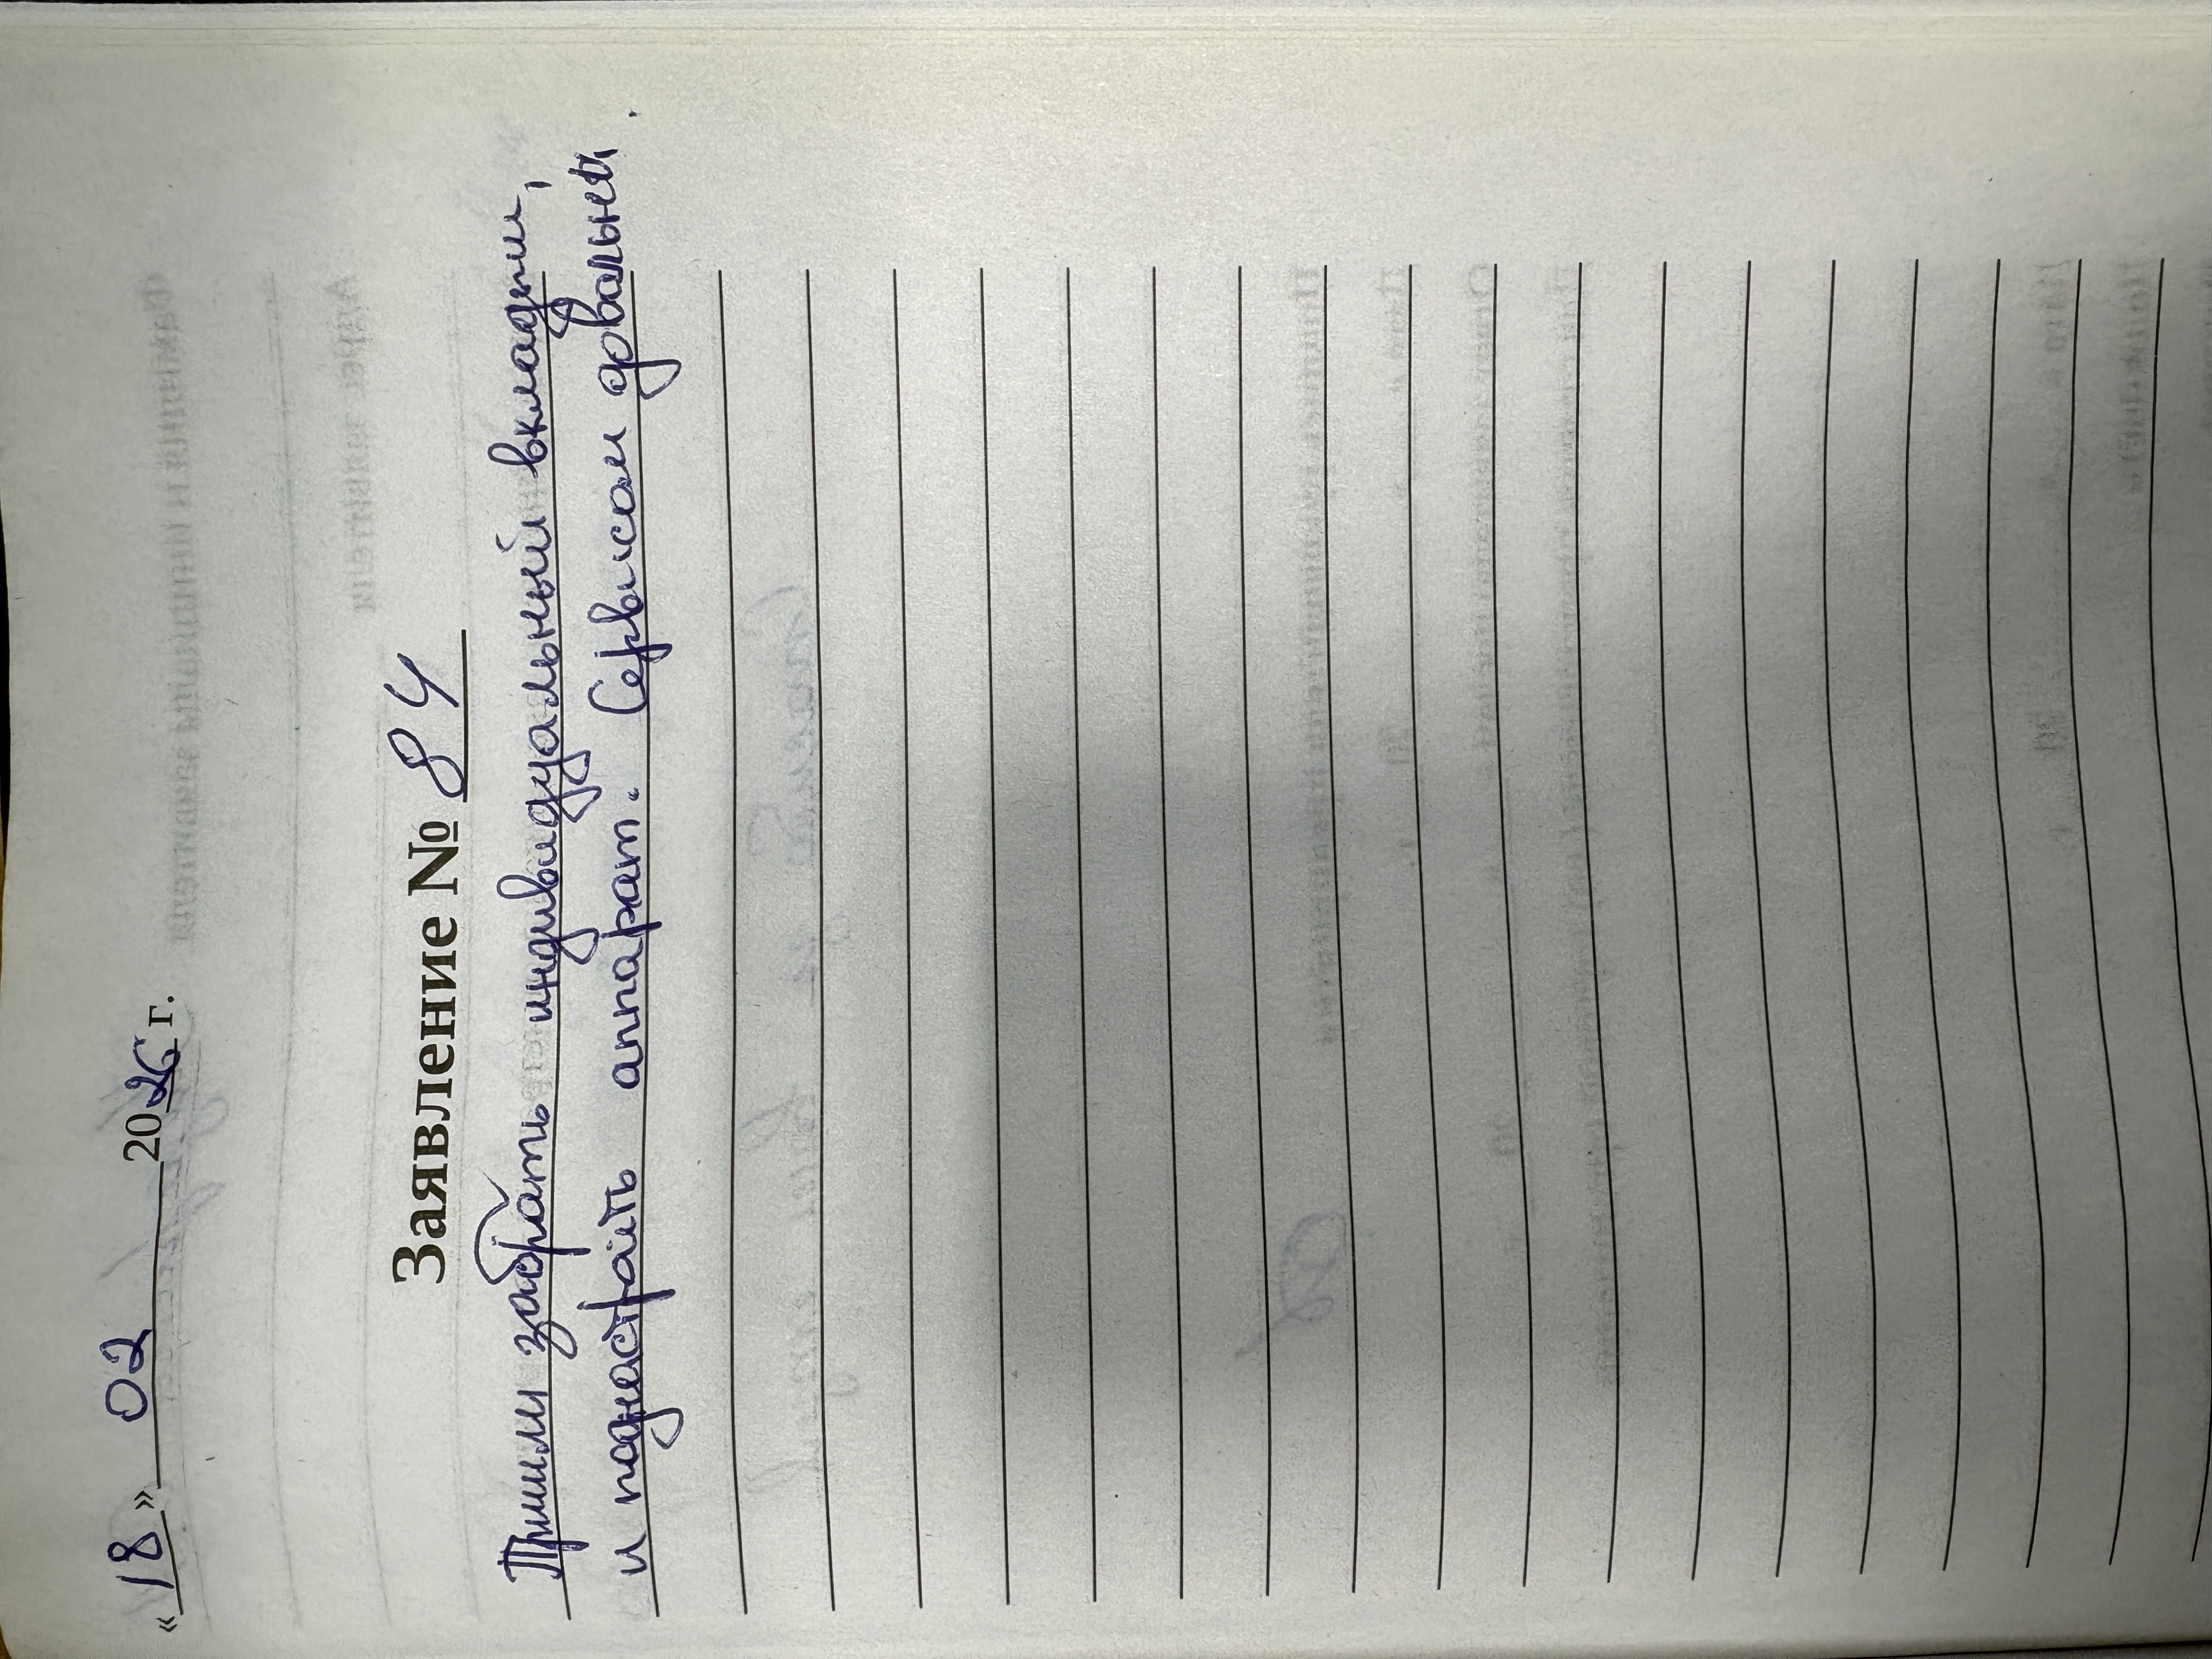 «18» 02 2026 г.
Заявление № 84
Пришли забрать индивидуальный вкладыш,
и поднастроить аппарат. Сервисом довольны.